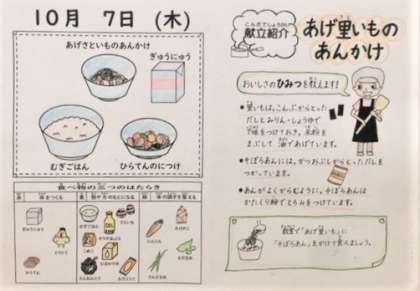 10月 7日 (木)
あげさといものあんかけ
ぎゅうにゅう
むぎごはん
ひらてんのにつけ
食べ物の三つのはたらき
献立紹介
あげ里いもの
あんかけ
おいしさのひみつを教えます!
・里いもは、こんぶからとった
だしとみりん・しょうゆで
下味をつけておき、米粉を
まぶして油であげています。
・そぼろあんには、かつおぶしからとっただしを
つかっています。
・あんがよくからむように、そぼろあんは
かたくり粉でとろみをつけています。
教室で「あげ里いも」に
「そぼろあん」をかけて食べましょう。